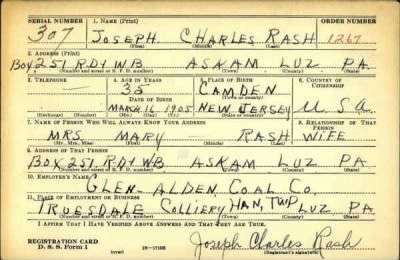 SERIAL NUMBER 1. NAME (Print) ORDER NUMBER
307 JOSEPH CHARLES RASH 1267
(First) (Middle) (Last)
2. ADDRESS (Print)
BOX 251 RD1 WB ASKAM LUZ PA.
(Number and street or R. F. D. number) (Town) (County) (State)
3. TELEPHONE 4. AGE IN YEARS 5. PLACE OF BIRTH 6. COUNTRY OF CITIZENSHIP
35 CAMDEN
DATE OF BIRTH (Town or county)
MARCH 16 1905 NEW JERSEY U S A
(Exchange) (Number) (Mo.) (Day) (Yr.) (State or country)
7. NAME OF PERSON WHO WILL ALWAYS KNOW YOUR ADDRESS 8. RELATIONSHIP OF THAT PERSON
MRS. MARY RASH WIFE
(Mr., Mrs., Miss) (First) (Middle) (Last)
9. ADDRESS OF THAT PERSON
BOX 251 RD1 WB ASKAM LUZ PA.
(Number and street or R. F. D. number) (Town) (County) (State)
10. EMPLOYER'S NAME
GLEN ALDEN COAL CO.
11. PLACE OF EMPLOYMENT OR BUSINESS
TRUESDALE COLLIERY HAN, TWP LUZ PA.
(Number and street or R. F. D. number) (Town) (County) (State)
I AFFIRM THAT I HAVE VERIFIED ABOVE ANSWERS AND THAT THEY ARE TRUE.
REGISTRATION CARD
D. S. S. Form 1 (over) 16-17105 Joseph Charles Rash